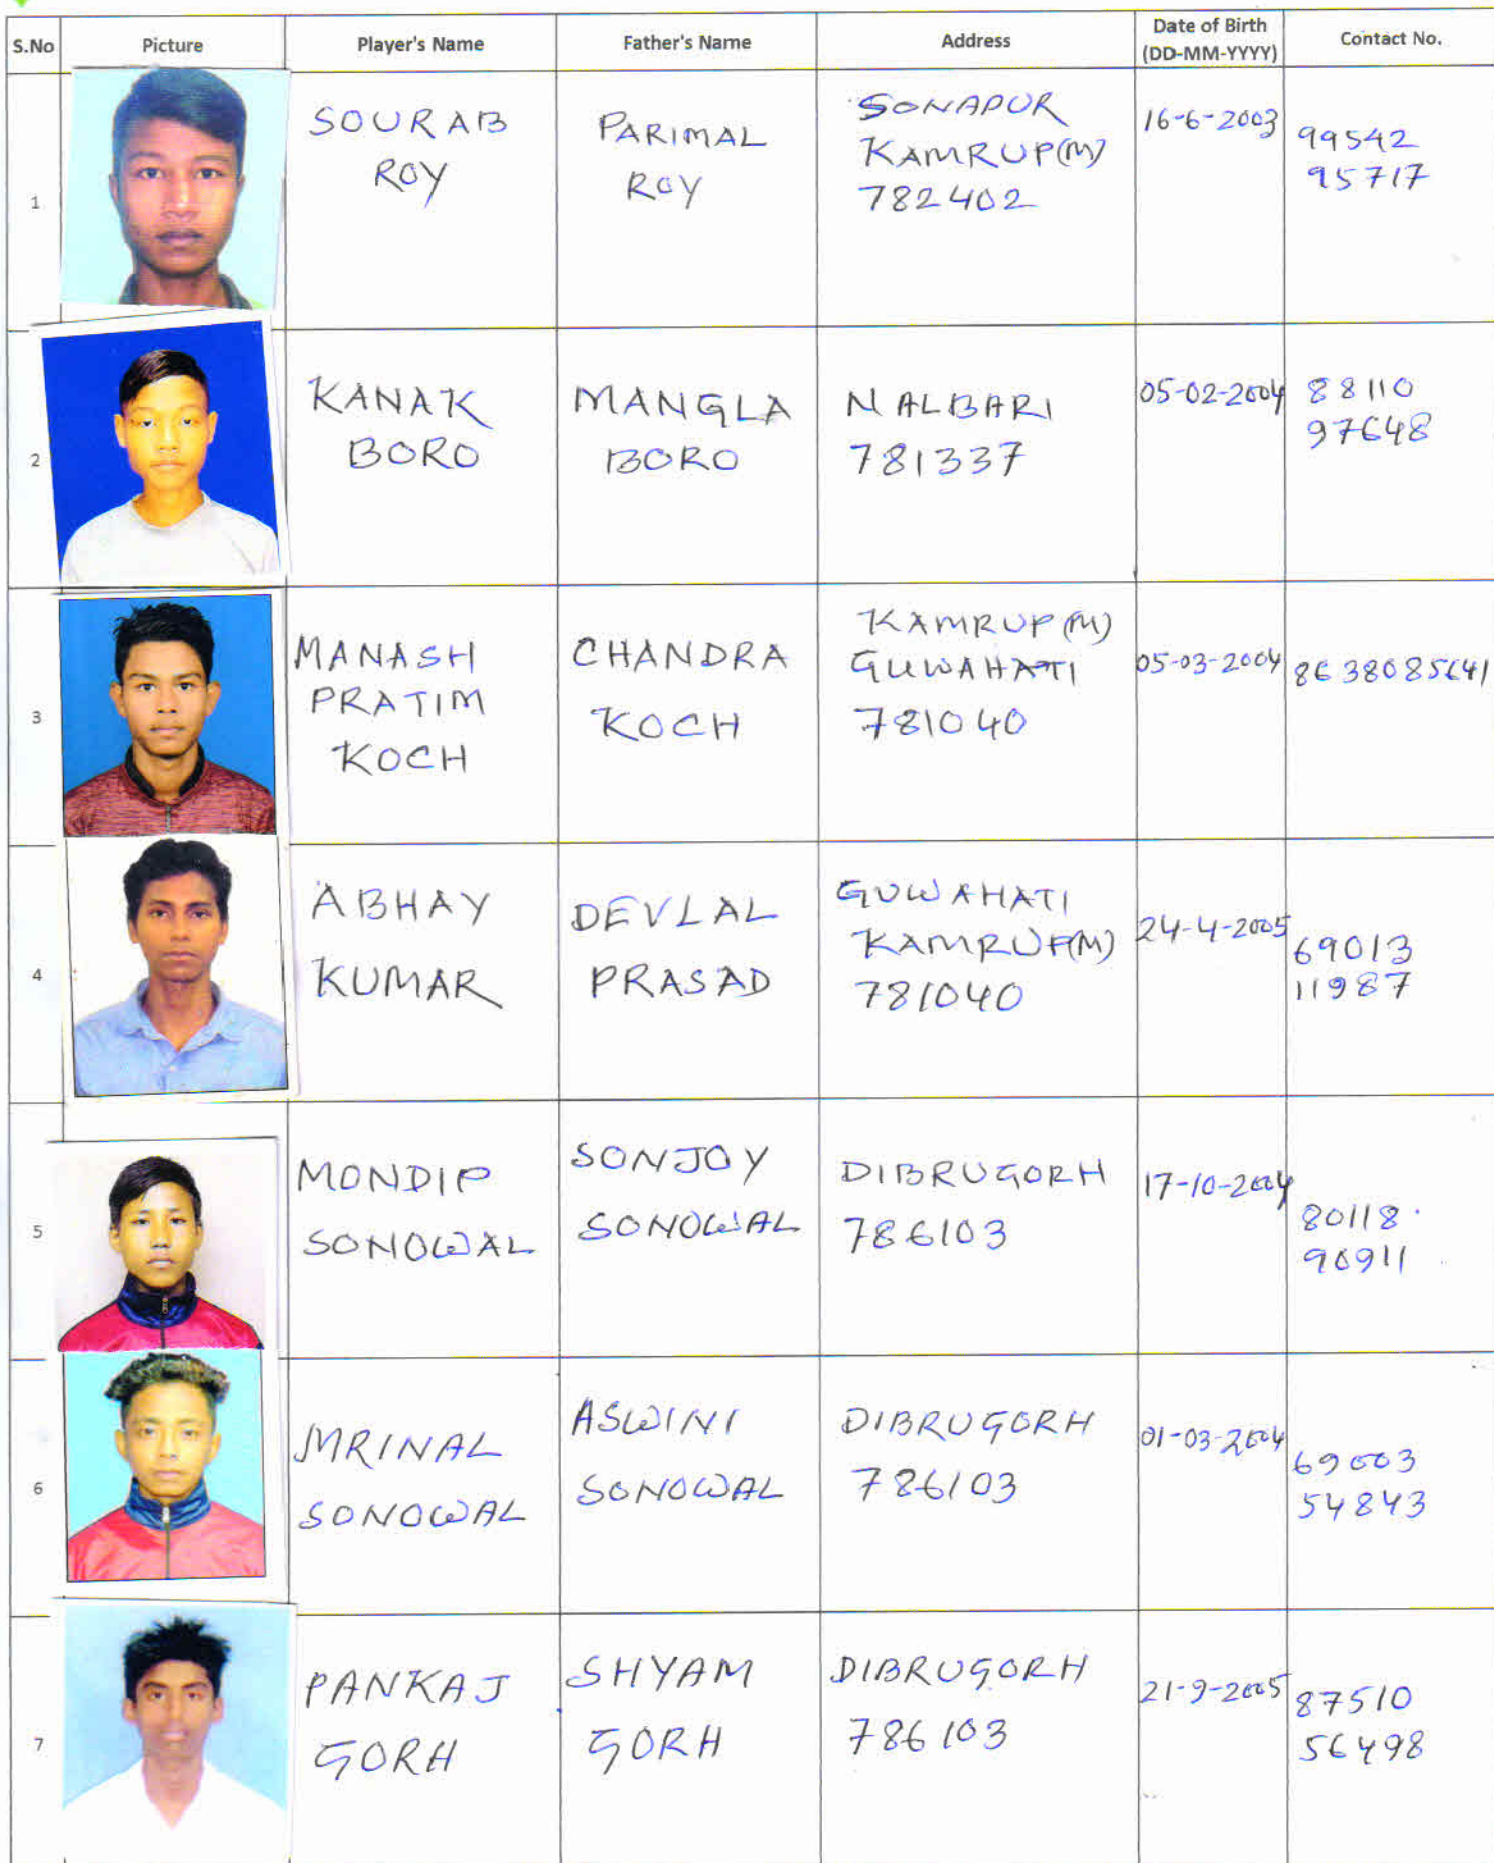 S.No Picture Player's Name Father's Name Address Date of Birth (DD-MM-YYYY) Contact No.
1
SOURAB
ROY
PARIMAL
ROY
SONAPUR
KAMRUP(M)
782402
16-6-2003
99542
95717
2
KANAK
BORO
MANGLA
BORO
NALBARI
781337
05-02-2004
88110
97648
3
MANASH
PRATIM
KOCH
CHANDRA
KOCH
KAMRUP(M)
GUWAHATI
781040
05-03-2004
8638085641
4
ABHAY
KUMAR
DEVLAL
PRASAD
GUWAHATI
KAMRUP(M)
781040
24-4-2005
69013
11987
5
MONDIP
SONOWAL
SONJOY
SONOWAL
DIBRUGORH
786103
17-10-2004
80118
90911
6
MRINAL
SONOWAL
ASWINI
SONOWAL
DIBRUGORH
786103
01-03-2004
69003
54843
7
PANKAJ
GORH
SHYAM
GORH
DIBRUGORH
786103
21-9-2005
87510
56498